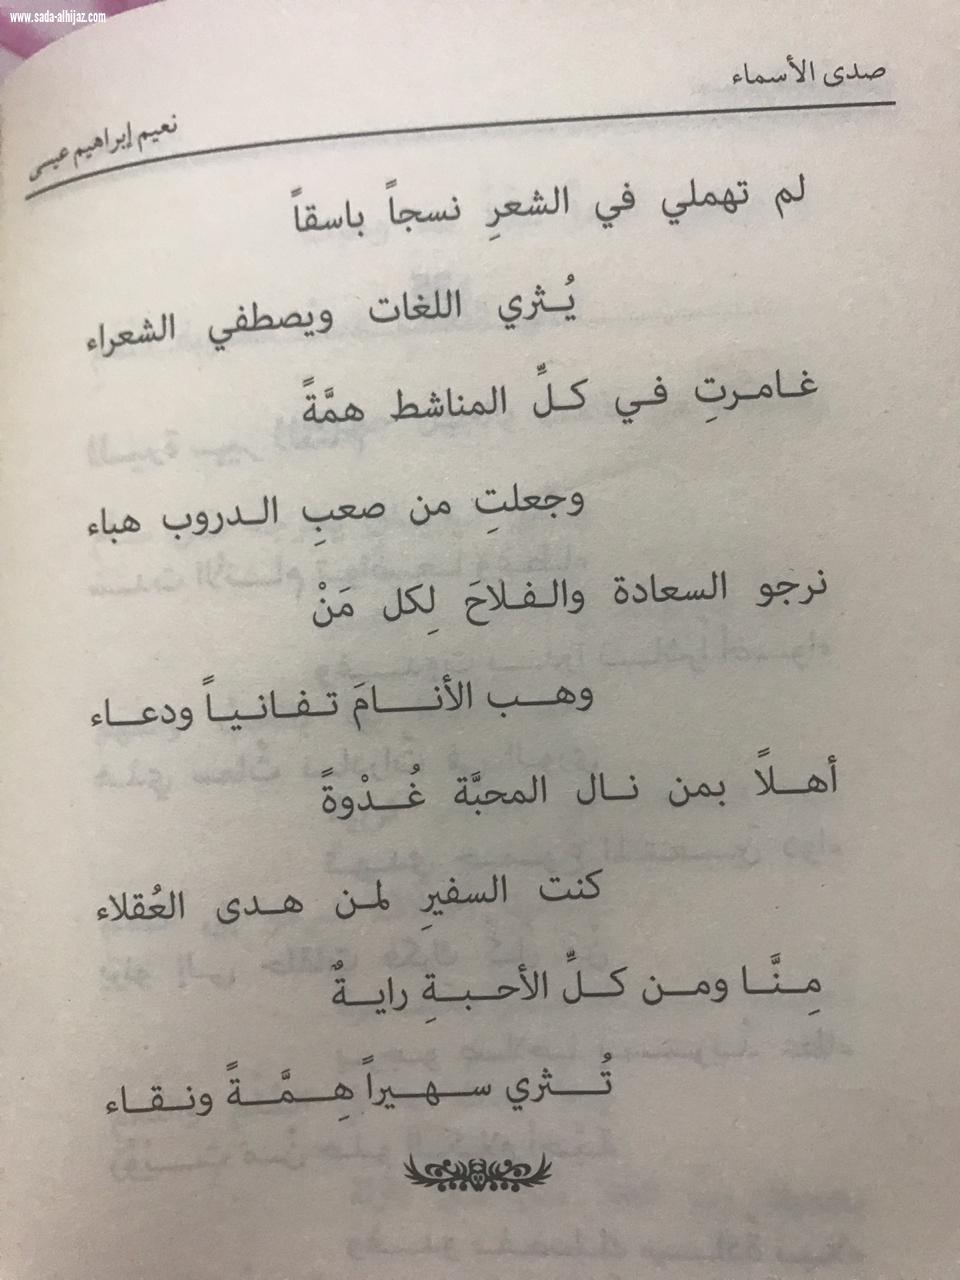 www.sada-alhijaz.com
صدى الأسماء
نعيم إبراهيم عيسى
لم تهملي في الشعرِ نسجاً باسقاً
يُثري اللغات ويصطفي الشعراء
غامرتِ في كلِّ المناشط همَّةً
وجعلتِ من صعبِ الدروب هباء
نرجو السعادة والفلاحَ لِكل مَنْ
وهب الأنامَ تفانياً ودعاء
أهلاً بمن نال المحبَّة غُدْوةً
كنت السفيرِ لمن هدى العُقلاء
مِنَّا ومن كلِّ الأحبةِ رايةٌ
تُثري سهيراً هِمَّةً ونقاء